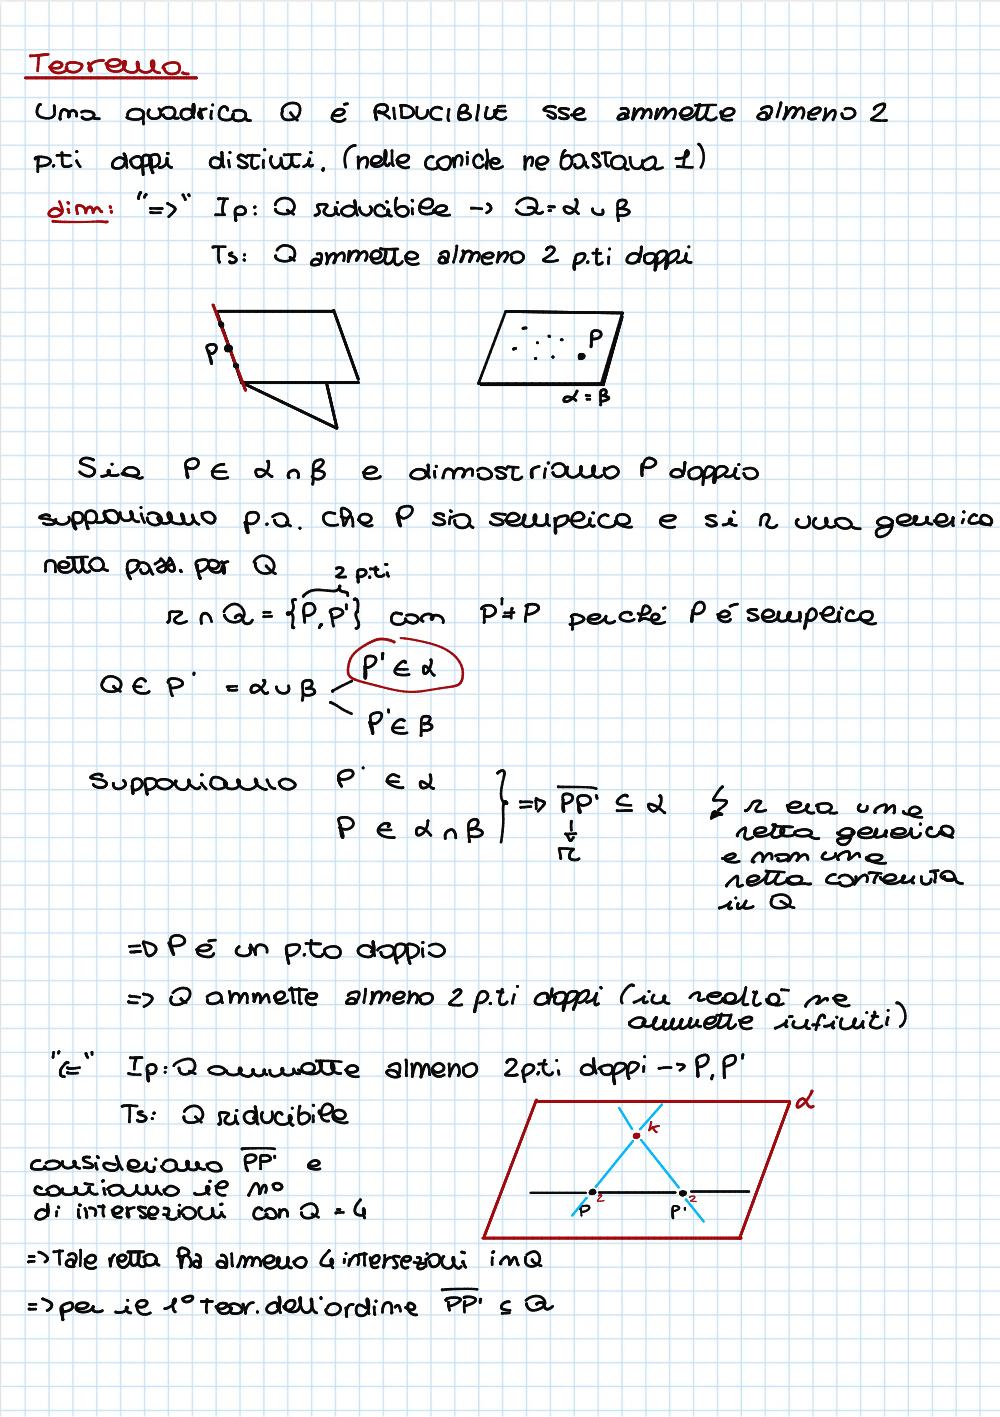 Teorema
Una quadrica Q è RIDUCIBILE sse ammette almeno 2
p.ti doppi distinti. (nelle coniche ne bastava 1)
dim: "=>" Ip: Q riducibile -> Q = α ∪ β
Ts: Q ammette almeno 2 p.ti doppi
P
P
α = β
Sia P ∈ α ∩ β e dimostriamo P doppio
supponiamo p.a. che P sia semplice e si r una generica
retta pass. per Q
2 p.ti
r ∩ Q = {P, P'} con P' ≠ P perché P è semplice
Q ∈ P' = α ∪ β
P' ∈ α
P' ∈ β
Supponiamo P' ∈ α
P ∈ α ∩ β
=> PP' ⊆ α
r
↯ r era una
retta generica
e non una
retta contenuta
in Q
=> P è un p.to doppio
=> Q ammette almeno 2 p.ti doppi (in realtà ne
ammette infiniti)
"<=" Ip: Q ammette almeno 2 p.ti doppi -> P, P'
Ts: Q riducibile
α
k
P 2
P' 2
consideriamo PP' e
contiamo il n°
di intersezioni con Q = 4
=> Tale retta ha almeno 4 intersezioni in Q
=> per il 1° teor. dell'ordine PP' ⊆ Q